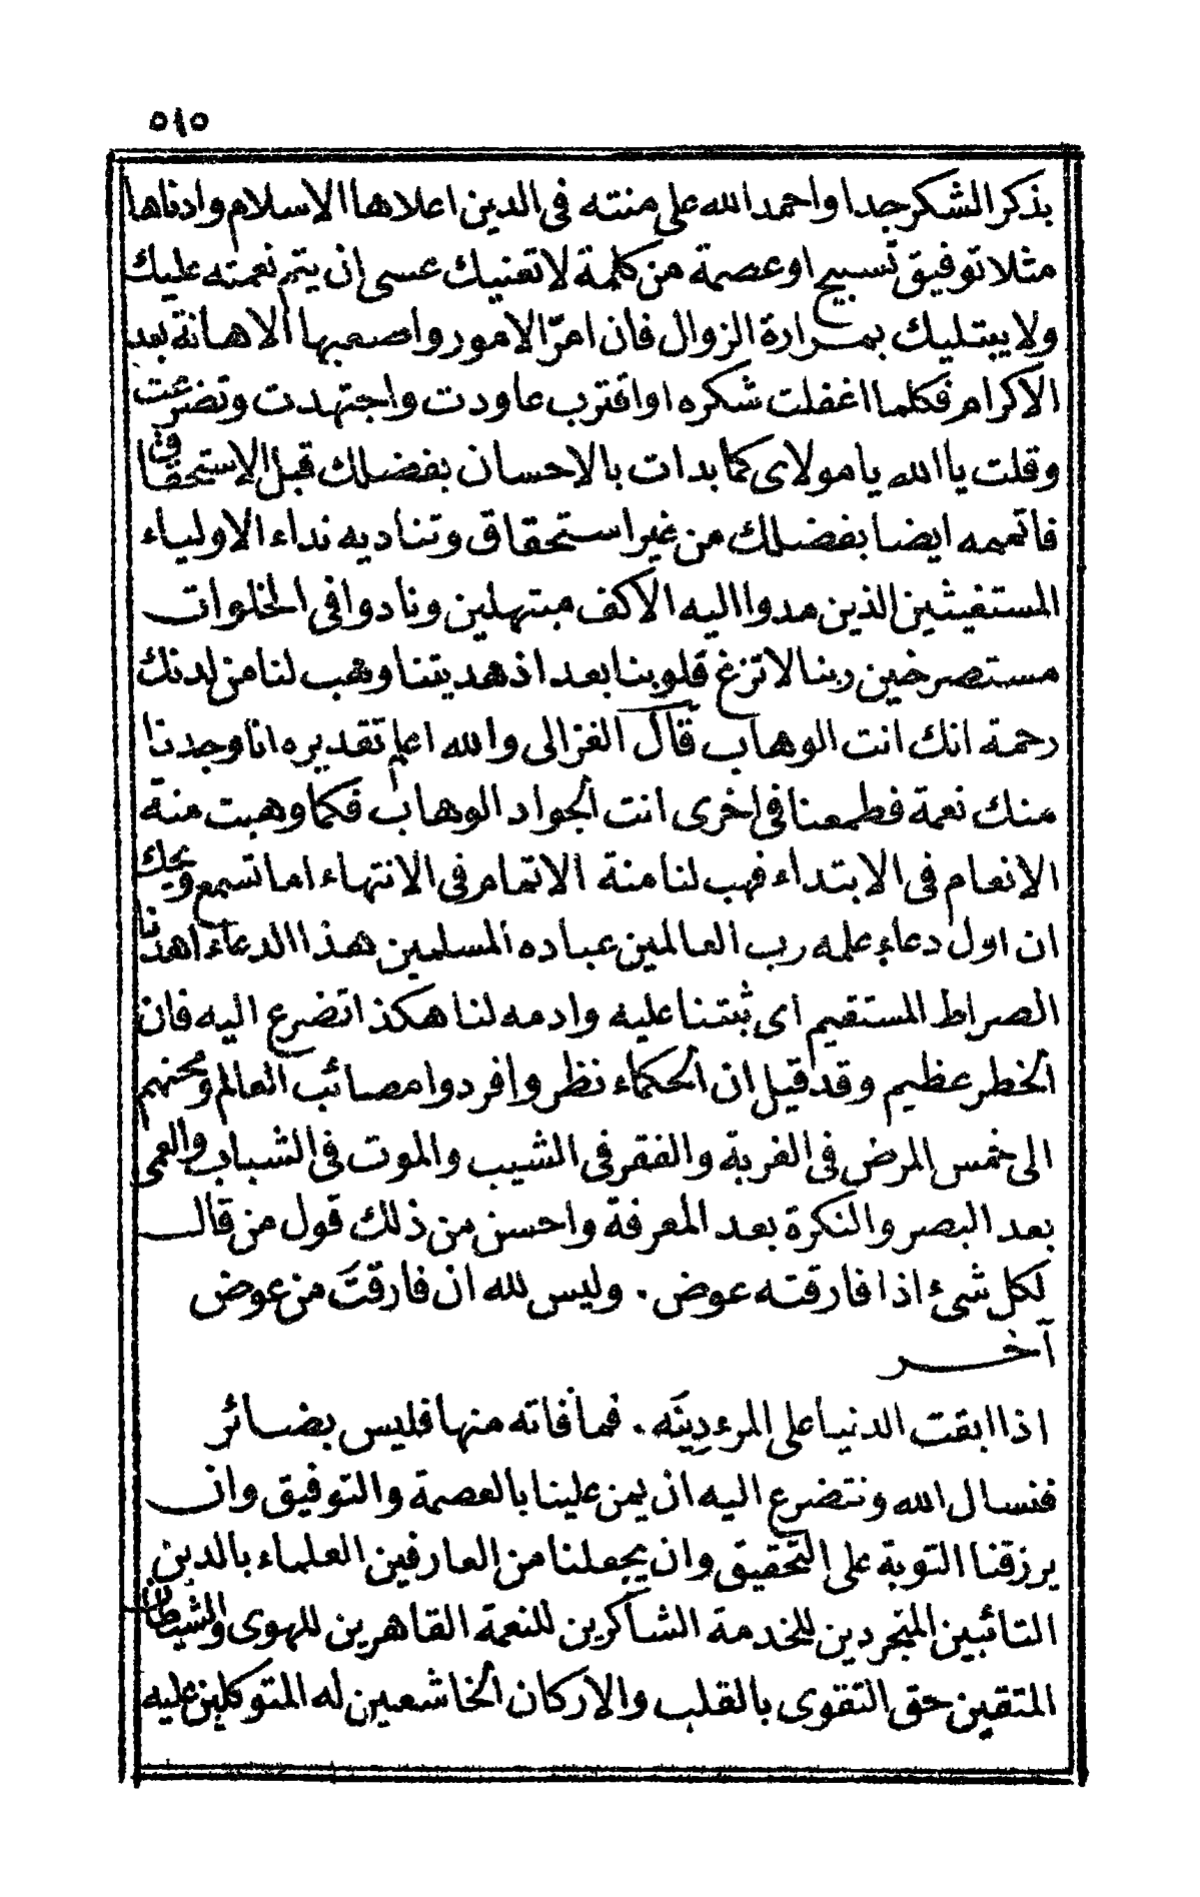 ٥١٥
بذكر الشكر جدا واحمد الله على منته فى الدين اعلاها الاسلام وادناها
مثلا توفيق تسبيح او عصمة من كلمة لا تعنيك عسى ان يتم نعمته عليك
ولا يبتليك بمرارة الزوال فان امرّ الامور واصعبها الاهانة بعد
الاكرام فكلما اغفلت شكره او اقترب عاودت واجتهدت وتضرعت
وقلت يا الله يا مولاى كما بدات بالاحسان بفضلك قبل الاستحقاق
فاتممه ايضا بفضلك من غير استحقاق وتناديه نداء الاولياء
المستغيثين الذين مدوا اليه الاكف مبتهلين ونادوا فى الخلوات
مستصرخين ربنا لا تزغ قلوبنا بعد اذ هديتنا وهب لنا من لدنك
رحمة انك انت الوهاب قال الغزالى والله اعلم تقديره انا وجدنا
منك نعمة فطمعنا فى اخرى انت الجواد الوهاب فكما وهبت منة
الانعام فى الابتداء فهب لنا منة الاتمام فى الانتهاء اما تسمع ويحك
ان اول دعاء علمه رب العالمين عباده المسلمين هذا الدعاء اهدنا
الصراط المستقيم اى ثبتنا عليه وادمه لنا هكذا تضرع اليه فان
الخطر عظيم وقد قيل ان الحكماء نظروا فردوا مصائب العالم ومحنهم
الى خمس المرض فى الغربة والفقر فى الشيب والموت فى الشباب والعمى
بعد البصر والنكرة بعد المعرفة واحسن من ذلك قول من قال
لكل شئ اذا فارقته عوض . وليس لله ان فارقتَ من عوض
آخر
اذا ابقت الدنيا على المرء دِينَه . فما فاته منها فليس بضائر
فنسال الله ونتضرع اليه ان يمن علينا بالعصمة والتوفيق وان
يرزقنا التوبة على التحقيق وان يجعلنا من العارفين العلماء بالدين
التائبين المتجردين للخدمة الشاكرين للنعمة القاهرين للهوى والشيطان
المتقين حق التقوى بالقلب والاركان الخاشعين له المتوكلين عليه